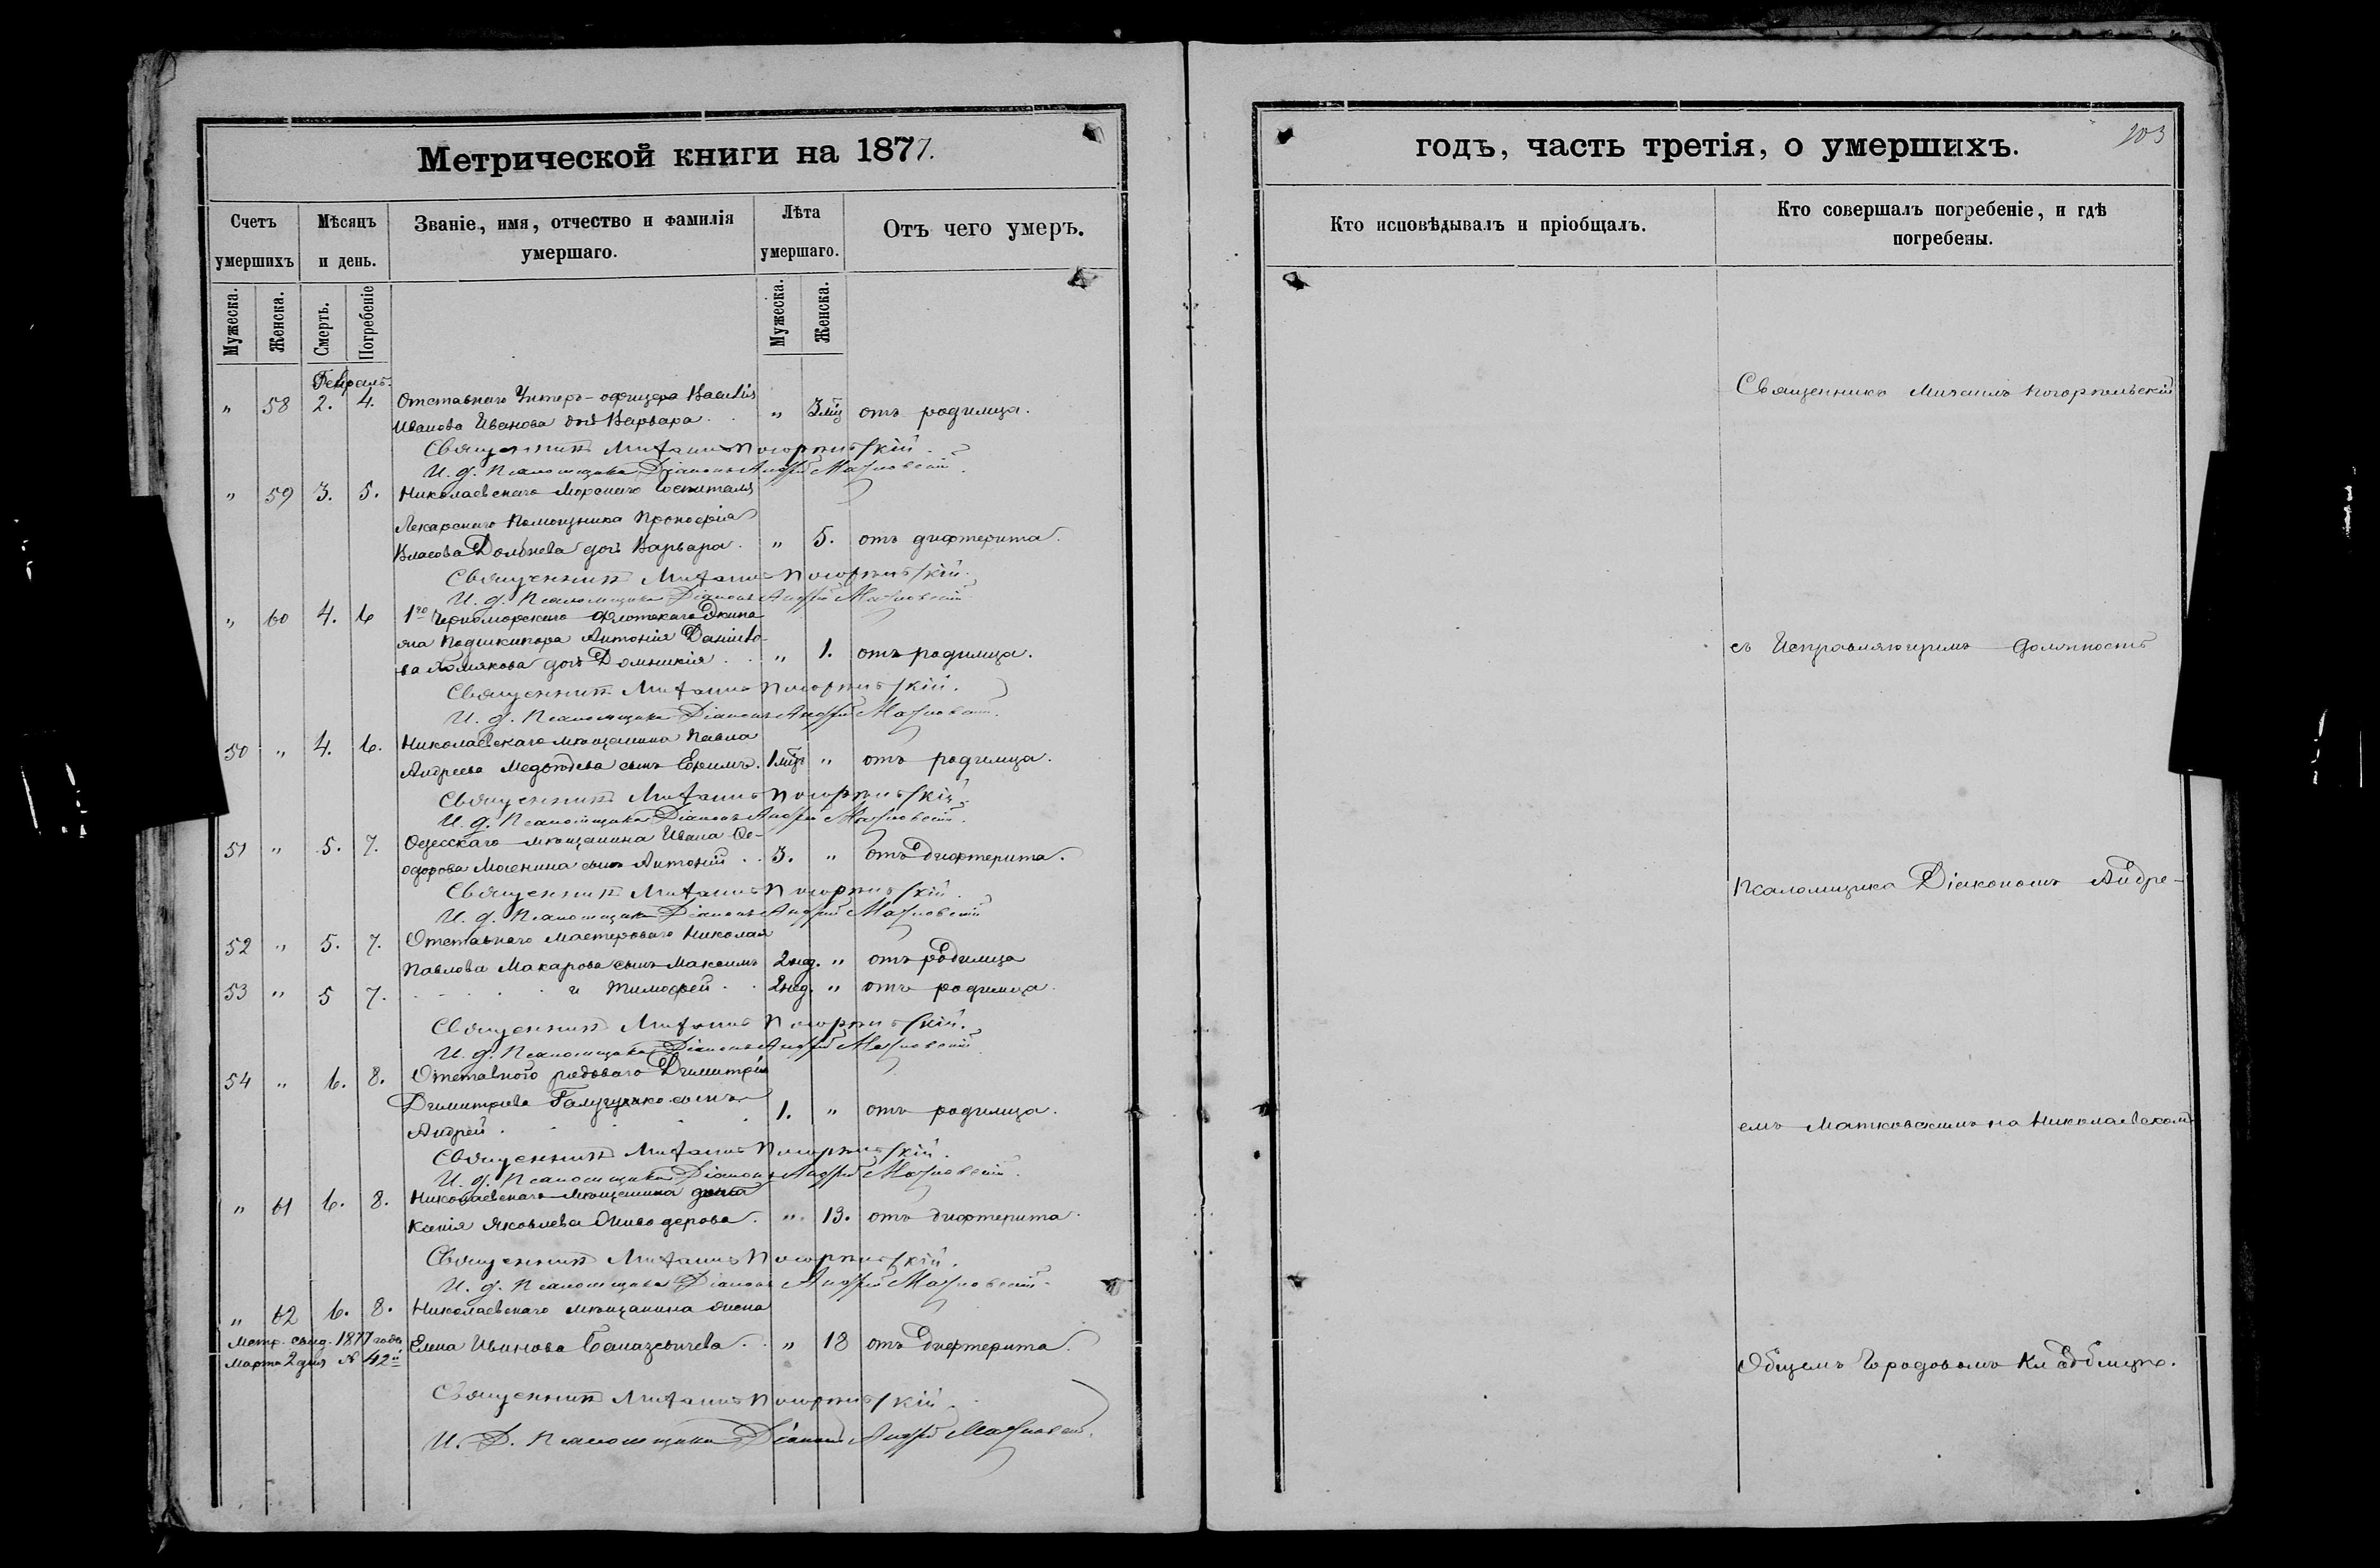 Метрической книги на 1877.
Счетъ умершихъ
Мѣсяцъ и день.
Званіе, имя, отчество и фамилія умершаго.
Лѣта умершаго.
Отъ чего умеръ.
Мужеска.
Женска.
Смерть.
Погребеніе
Мужеска.
Женска.
Февраль.
" 58 2. 4. Отставнаго Унтеръ-офицера Василія
Иванова Иванова дочь Варвара. " 3 мѣс отъ родимца.
Священникъ Михаилъ Погорѣльскій.
И. д. Псаломщика Діаконъ Андрей Матковскій.
" 59 3. 5. Николаевскаго Морскаго Госпиталя
Лекарскаго Помощника Прокофія
Власова дочь Варвара. " 5. отъ дифтерита.
Священникъ Михаилъ Погорѣльскій.
И. д. Псаломщика Діаконъ Андрей Матковскій
" 60 4. 6 1го Черноморскаго Флотскаго Экипа-
жа Подшкипера Антонія
Хомякова дочь Домникія . . " 1. отъ родимца.
Священникъ Михаилъ Погорѣльскій.
И. д. Псаломщика Діаконъ Андрей Матковскій.
50 " 4. 6. Николаевскаго мѣщанина Павла
Андреева сынъ Ефимъ. 1 мѣс " отъ родимца.
Священникъ Михаилъ Погорѣльскій.
И. д. Псаломщика Діаконъ Андрей Матковскій.
51 " 5. 7. Одесскаго мѣщанина Ивана Ѳе-
одорова сынъ Антоній . . 3. " отъ дифтерита.
Священникъ Михаилъ Погорѣльскій.
И. д. Псаломщика Діаконъ Андрей Матковскій
52 " 5. 7. Отставнаго Мастероваго Николая
Павлова Макарова сынъ Максимъ 2 нед. " отъ родимца
53 " 5 7. . . . . и Тимофей . . 2 нед. " отъ родимца.
Священникъ Михаилъ Погорѣльскій.
И. д. Псаломщика Діаконъ Андрей Матковскій
54 " 6. 8. Отставного рядоваго Димитрія
Димитріева сынъ
Андрей . . . . 1. " отъ родимца.
Священникъ Михаилъ Погорѣльскій.
И. д. Псаломщика Діаконъ Андрей Матковскій.
" 61 6. 8. Николаевскаго Мѣщанина
Ксенія Яковлева . " 13. отъ дифтерита.
Священникъ Михаилъ Погорѣльскій.
И. д. Псаломщика Діаконъ Андрей Матковскій.
" 62 6. 8. Николаевскаго мѣщанина жена
Елена Иванова . . " 18 отъ дифтерита.
Метр. свид. 1877 года
Марта 2 дня № 42й
Священникъ Михаилъ Погорѣльскій.
И. Д. Псаломщика Діаконъ Андрей Матковскій.
годъ, часть третія, о умершихъ.
203
Кто исповѣдывалъ и пріобщалъ.
Кто совершалъ погребеніе, и гдѣ погребены.
Священникъ Михаилъ Погорѣльскій
съ Исправляющимъ должность
Псаломщика Діакономъ Андре-
емъ Матковскимъ на Николаевскомъ
Общемъ Городовомъ Кладбищѣ.